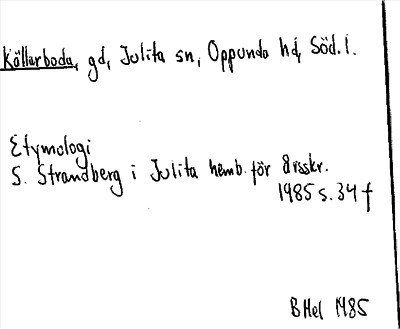 Källarboda, gd, Julita sn, Oppunda hd, Söd. l.
Etymologi
S. Strandberg i Julita hemb. för årsskr.
1985 s. 34 f
B Hel 1985